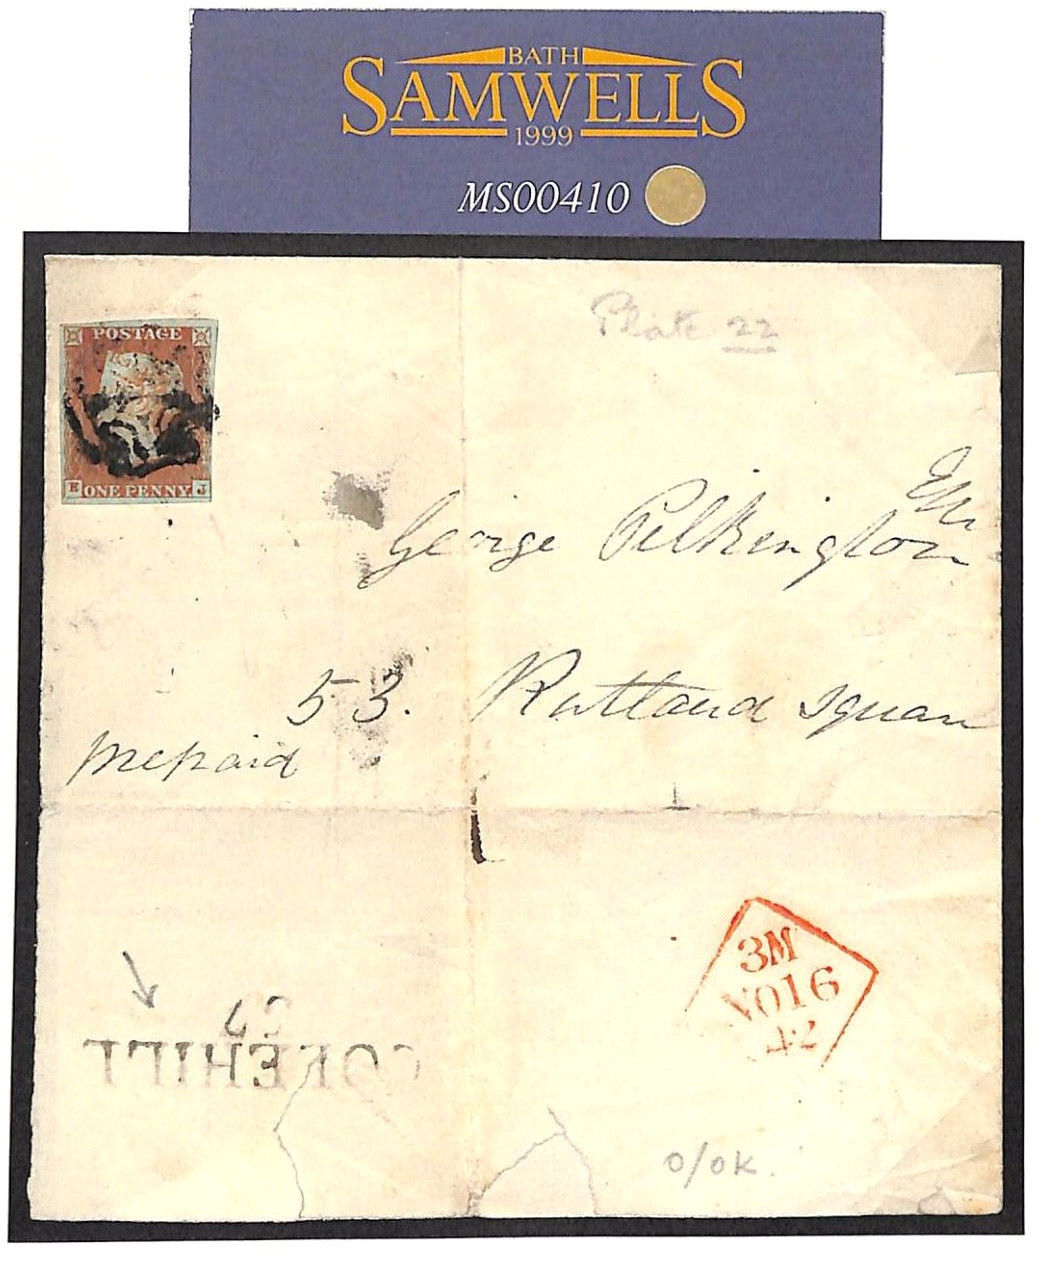 BATH
SAMWELLS
1999
MS00410
Plate 22
POSTAGE
E ONE PENNY J
Esq
George Pilkington
53. Rutland Square
prepaid
3M
NO16
42
COKEHILL
O/OK.